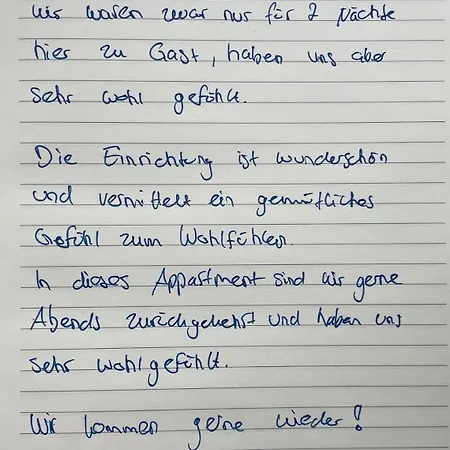 Wir waren zwar nur für 2 Nächte
hier zu Gast, haben uns aber
sehr wohl gefühlt.
Die Einrichtung ist wunderschön
und vermittelt ein gemütliches
Gefühl zum Wohlfühlen.
In dieses Appartment sind wir gerne
Abends zurückgekehrt und haben uns
sehr wohlgefühlt.
Wir kommen gerne wieder!